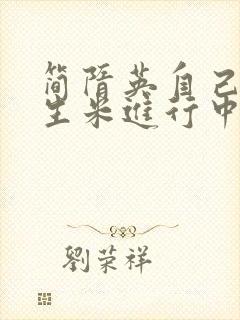 简隋英自己
生米進行中
劉荣祥